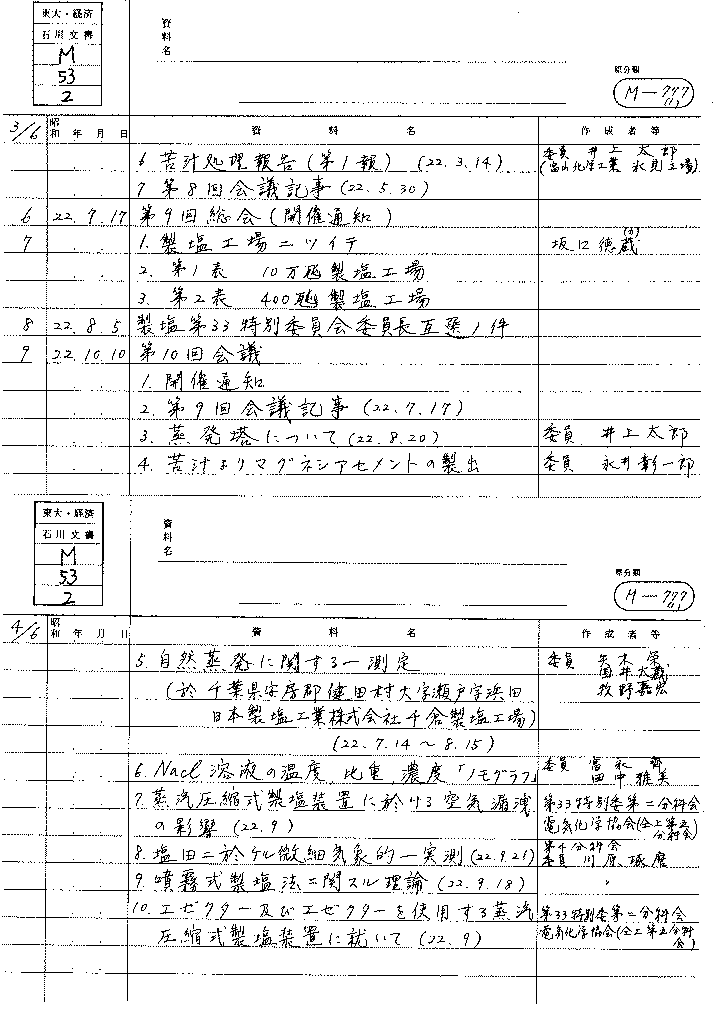 東大・経済
石川文書
M
53
2
資料名
原分類
M-777
(1)
3/6 昭和 年 月 日 資料名 作成者等
6 苦汁処理報告(第1報) (22.3.14) 委員 井上太郎
(富山化学工業 氷見工場)
7 第8回会議記事(22.5.30)
6 22.7.17 第9回総会(開催通知)
7 1. 製塩工場ニツイテ 坂口徳蔵(カ)
2. 第1表 10万瓲製塩工場
3. 第2表 400瓲製塩工場
8 22.8.5 製塩第33特別委員会委員長互選ノ件
9 22.10.10 第10回会議
1. 開催通知
2. 第9回会議記事(22.7.17)
3. 蒸発塔について(22.8.20) 委員 井上太郎
4. 苦汁よりマグネシアセメントの製出 委員 永井彰一郎
東大・経済
石川文書
M
53
2
資料名
原分類
M-777
(1)
4/6 昭和 年 月 日 資料名 作成者等
5. 自然蒸発に関する一測定 委員 矢木 栄
国井大蔵
牧野嘉宏
(於 千葉県安房郡健田村大字瀬戸字浜田
日本製塩工業株式会社千倉製塩工場)
(22.7.14~8.15)
6. NaCl溶液の温度、比重、濃度「ノモグラフ」 委員 富永 齊
田中雅美
7. 蒸汽圧縮式製塩装置に於ける空気漏洩 第33特別委第二分科会
の影響(22.9) 電気化学協会(仝上第五分科会)
8. 塩田ニ於ケル微細気象的一実測(22.9.21) 第十分科会
委員 川原琢磨
9. 噴霧式製塩法ニ関スル理論(22.9.18) 〃
10. エゼクター及びエゼクターを使用する蒸汽 第33特別委第二分科会
圧縮式製塩装置に就いて(22.9) 電気化学協会(仝上第五分科会)